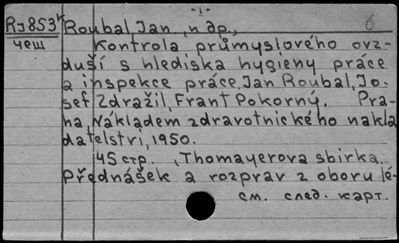 -1-
RJ853ч Roubal Jan, и др.,
чеш
Kontrola průmyslového ovz-
duší s hlediska hygieny práce
a inspekce práce, Jan Roubal, Jo-
sef Zdražil, Frant Pokorný. Pra-
ha, Nákladem zdravotnického nakla
datelství, 1950.
45 стр., Thomayerova sbirka.
Přednášek a rozprav z oboru lé-
см. след. карт.